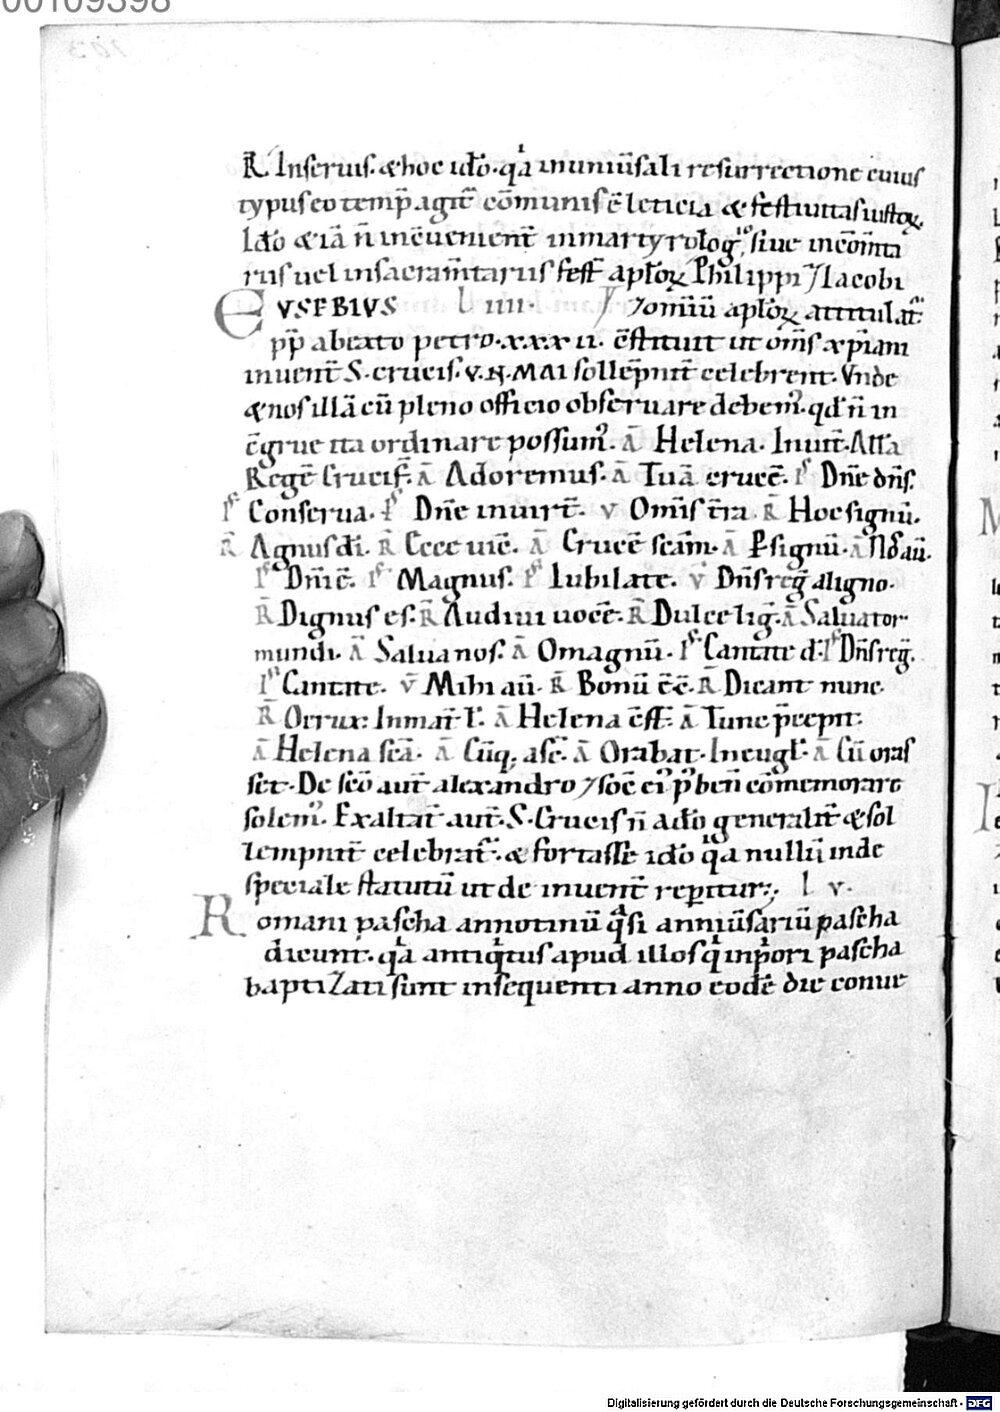 00109398
R̄. Inseruis. & hoc ido. qa inuniūsali resurrectione cuius
typus eo temp̄ agit̄ cōmunis ē leticia & festiuitas iustoꝝ.
Ido & iā n̄ incēuenient̄ inmartyrolog siue incōm̄ta
rus uel insacram̄tariis fest̄ aploꝝ Philippi ⁊ Iacobi
EVSEBIVS L iiii. ⁊ omiū aploꝝ attitulat̄
pp̄ abeato petro. xxx ii. c̄stituit ut om̄s xp̄iani
inuent̄ S. crucis. v. N. MAI sollēpnit̄ celebrent. Vnde
& nos illā cū pleno officio obseruare debem̄. qd n̄ in
c̄grue ita ordinare possum̄. ā Helena. Inuit̄. Alľa
Regē Crucif. ā Adoremus. ā Tuā crucē. ps Dn̄e dn̄s.
ps Conserua. ps Dn̄e inuirt̄. v Om̄is t̄ra. R̄ Hoc signū.
R̄ Agnus di. R̄ Ecce uic̄. ā Crucē scām. ā P signū. ā Nos aū.
ps Dn̄i ē. ps Magnus. ps Iubilate. v̄ Dn̄s reḡ aligno.
R̄ Dignus es. R̄ Audiui uocē. R̄ Dulce liḡ. ā Saluator
mundi. ā Salua nos. ā Omagnū. ps Cantate d. ps Dn̄s reḡ.
ps Cantate. v̄ Mihi aū. R̄ Bonū ē c̄. R̄ Dicant nunc.
R̄ Ocrux. Inmat̄. l. ā Helena c̄st̄. ā Tunc p̄cepit.
ā Helena scā. ā Cūq; asc̄. ā Orabat. Ineugl. ā Cū oras
set. De scō aut̄ alexandro ⁊ soc̄ ei p ben̄ cōmemorare
solem̄. Exaltat̄ aut̄. S. Crucis n̄ ado generalit̄ & sol
lempnit̄ celebrat̄. & fortasse ido qa nullū inde
speciale statutū ut de inuent̄ reperitur; L v.
Romani pascha annotinū qsi anniūsariū pascha
dicunt. qa antiqtus apud illos q inp̄ori pascha
baptiZati sunt insequenti anno eodē die conue
Digitalisierung gefördert durch die Deutsche Forschungsgemeinschaft - DFG